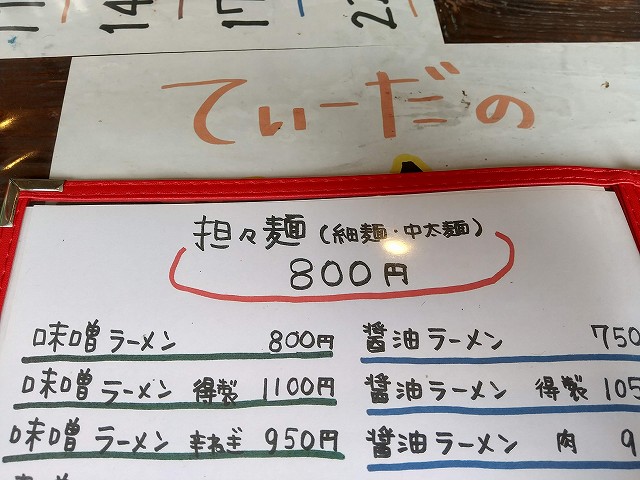 てぃーだの
担々麺(細麺・中太麺)
800円
味噌ラーメン 800円
味噌ラーメン 得製 1100円
味噌ラーメン 辛ねぎ 950円
醤油ラーメン 750
醤油ラーメン 得製 105
醤油ラーメン 肉 9